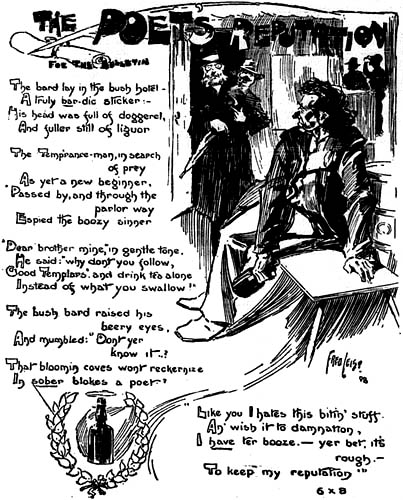 THE POET'S REPUTATION
FOR THE BULLETIN
The bard lay in the bush hotel -
A truly bar-dic sticker:-
His head was full of doggerel,
And fuller still of liquor
The Temp'rance-man, in search
of prey
As yet a new beginner,
Passed by, and through the
parlor way
Espied the boozy sinner
"Dear brother mine," in gentle tone,
He said: "why don't you follow,
"Good Templars" and drink tea alone
Instead of what you swallow!"
The bush bard raised his
beery eyes,
And mumbled: "Dont yer
know it.?
That bloomin coves wont reckernize
In sober blokes a poet?
"Like you I hates this bitin' stuff.
An' wish it to damnation,
I have ter booze.— yer bet, its
rough.—
To keep my reputation"
6 x 8
FRED LEIST
98